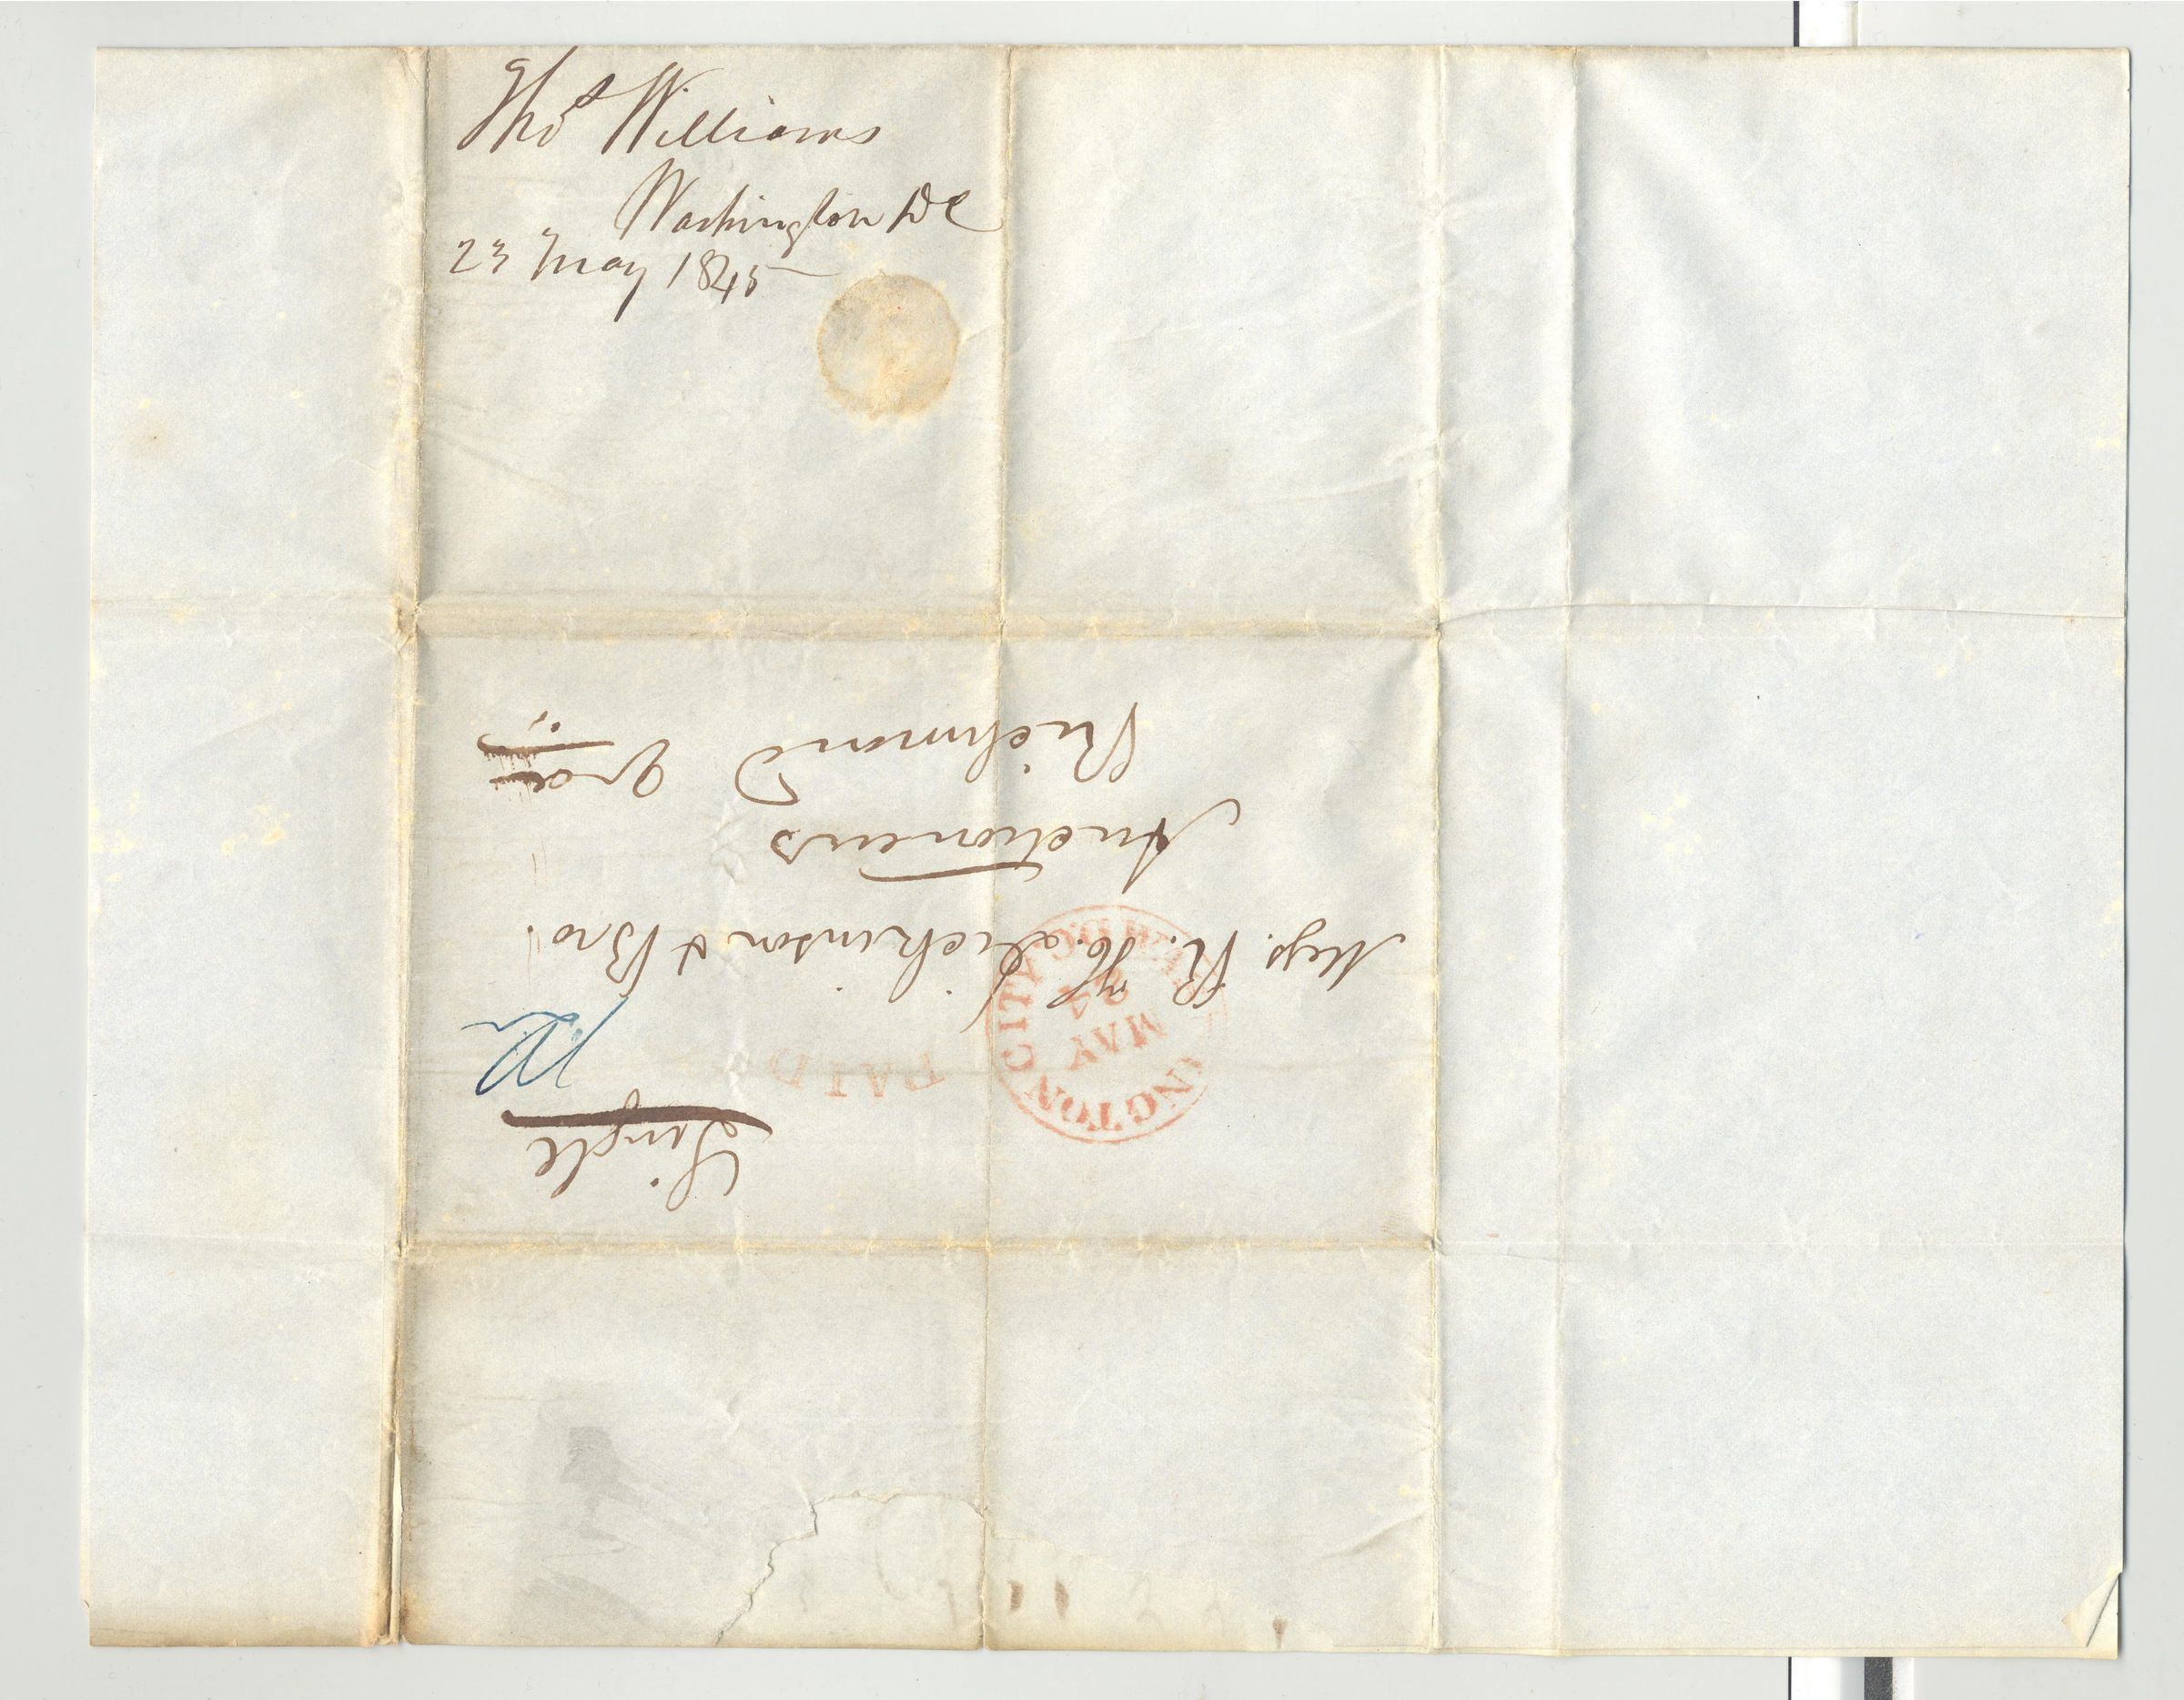 Thos Williams
Washington DC
23 May 1845
Single
PAID
WASHINGTON CITY D.C.
MAY
24
Mess. R. H. Dickinson & Bro.
Auctioneers
Richmond